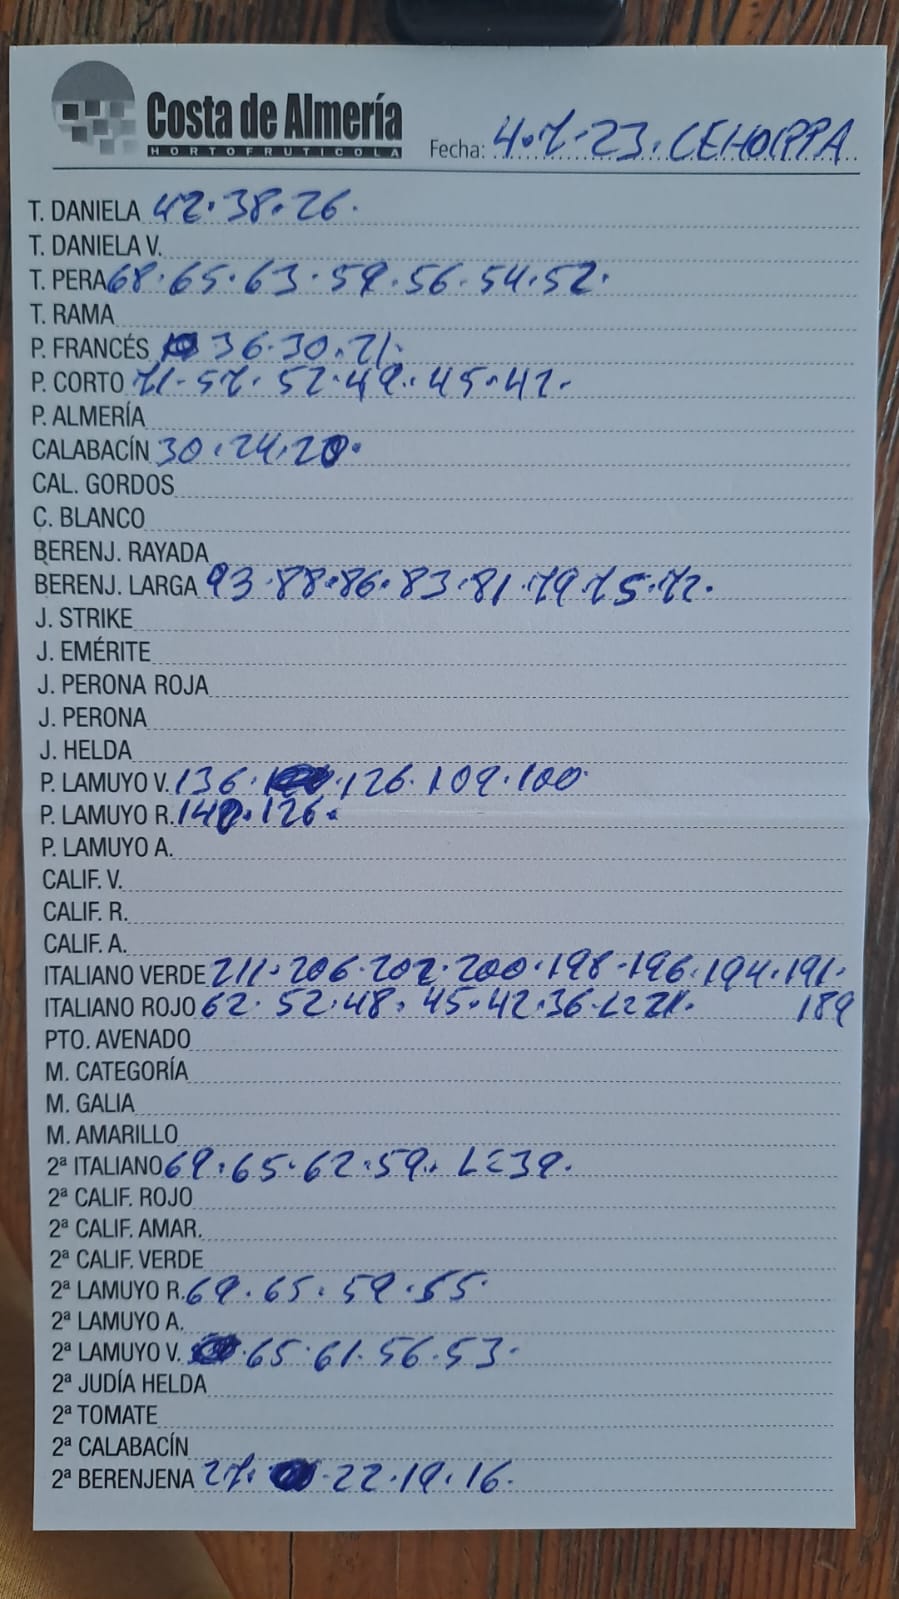 Costa de Almería
HORTOFRUTICOLA
Fecha: 4.7.23. CEHORPPA
T. DANIELA 42.38.26.
T. DANIELA V.
T. PERA 68.65.63.59.56.54.52.
T. RAMA
P. FRANCÉS 36.30.21.
P. CORTO 71.57.52.49.45.42.
P. ALMERÍA
CALABACÍN 30.24.20.
CAL. GORDOS
C. BLANCO
BERENJ. RAYADA
BERENJ. LARGA 93.88.86.83.81.79.75.72.
J. STRIKE
J. EMÉRITE
J. PERONA ROJA
J. PERONA
J. HELDA
P. LAMUYO V. 136. 126.109.100.
P. LAMUYO R. 126.
P. LAMUYO A.
CALIF. V.
CALIF. R.
CALIF. A.
ITALIANO VERDE 211.206.202.200.198.196.194.191.
ITALIANO ROJO 62.52.48.45.42.36. 189
PTO. AVENADO
M. CATEGORÍA
M. GALIA
M. AMARILLO
2ª ITALIANO 69.65.62.59. L=39.
2ª CALIF. ROJO
2ª CALIF. AMAR.
2ª CALIF. VERDE
2ª LAMUYO R. 69.65.59.55.
2ª LAMUYO A.
2ª LAMUYO V. 65.61.56.53.
2ª JUDÍA HELDA
2ª TOMATE
2ª CALABACÍN
2ª BERENJENA 27. 22.19.16.